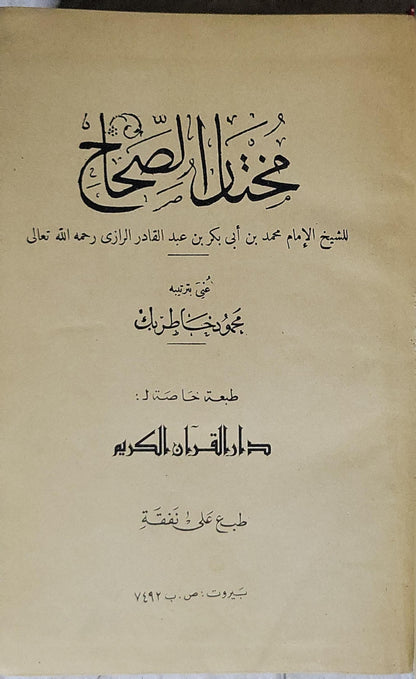 مختار الصحاح
للشيخ الإمام محمد بن أبى بكر بن عبد القادر الرازى رحمه الله تعالى
عُنى بترتيبه
محمود خاطر بك
طبعة خاصة لـ:
دار القرآن الكريم
طبع على نفقة
بيروت : ص. ب ٧٤٩٢